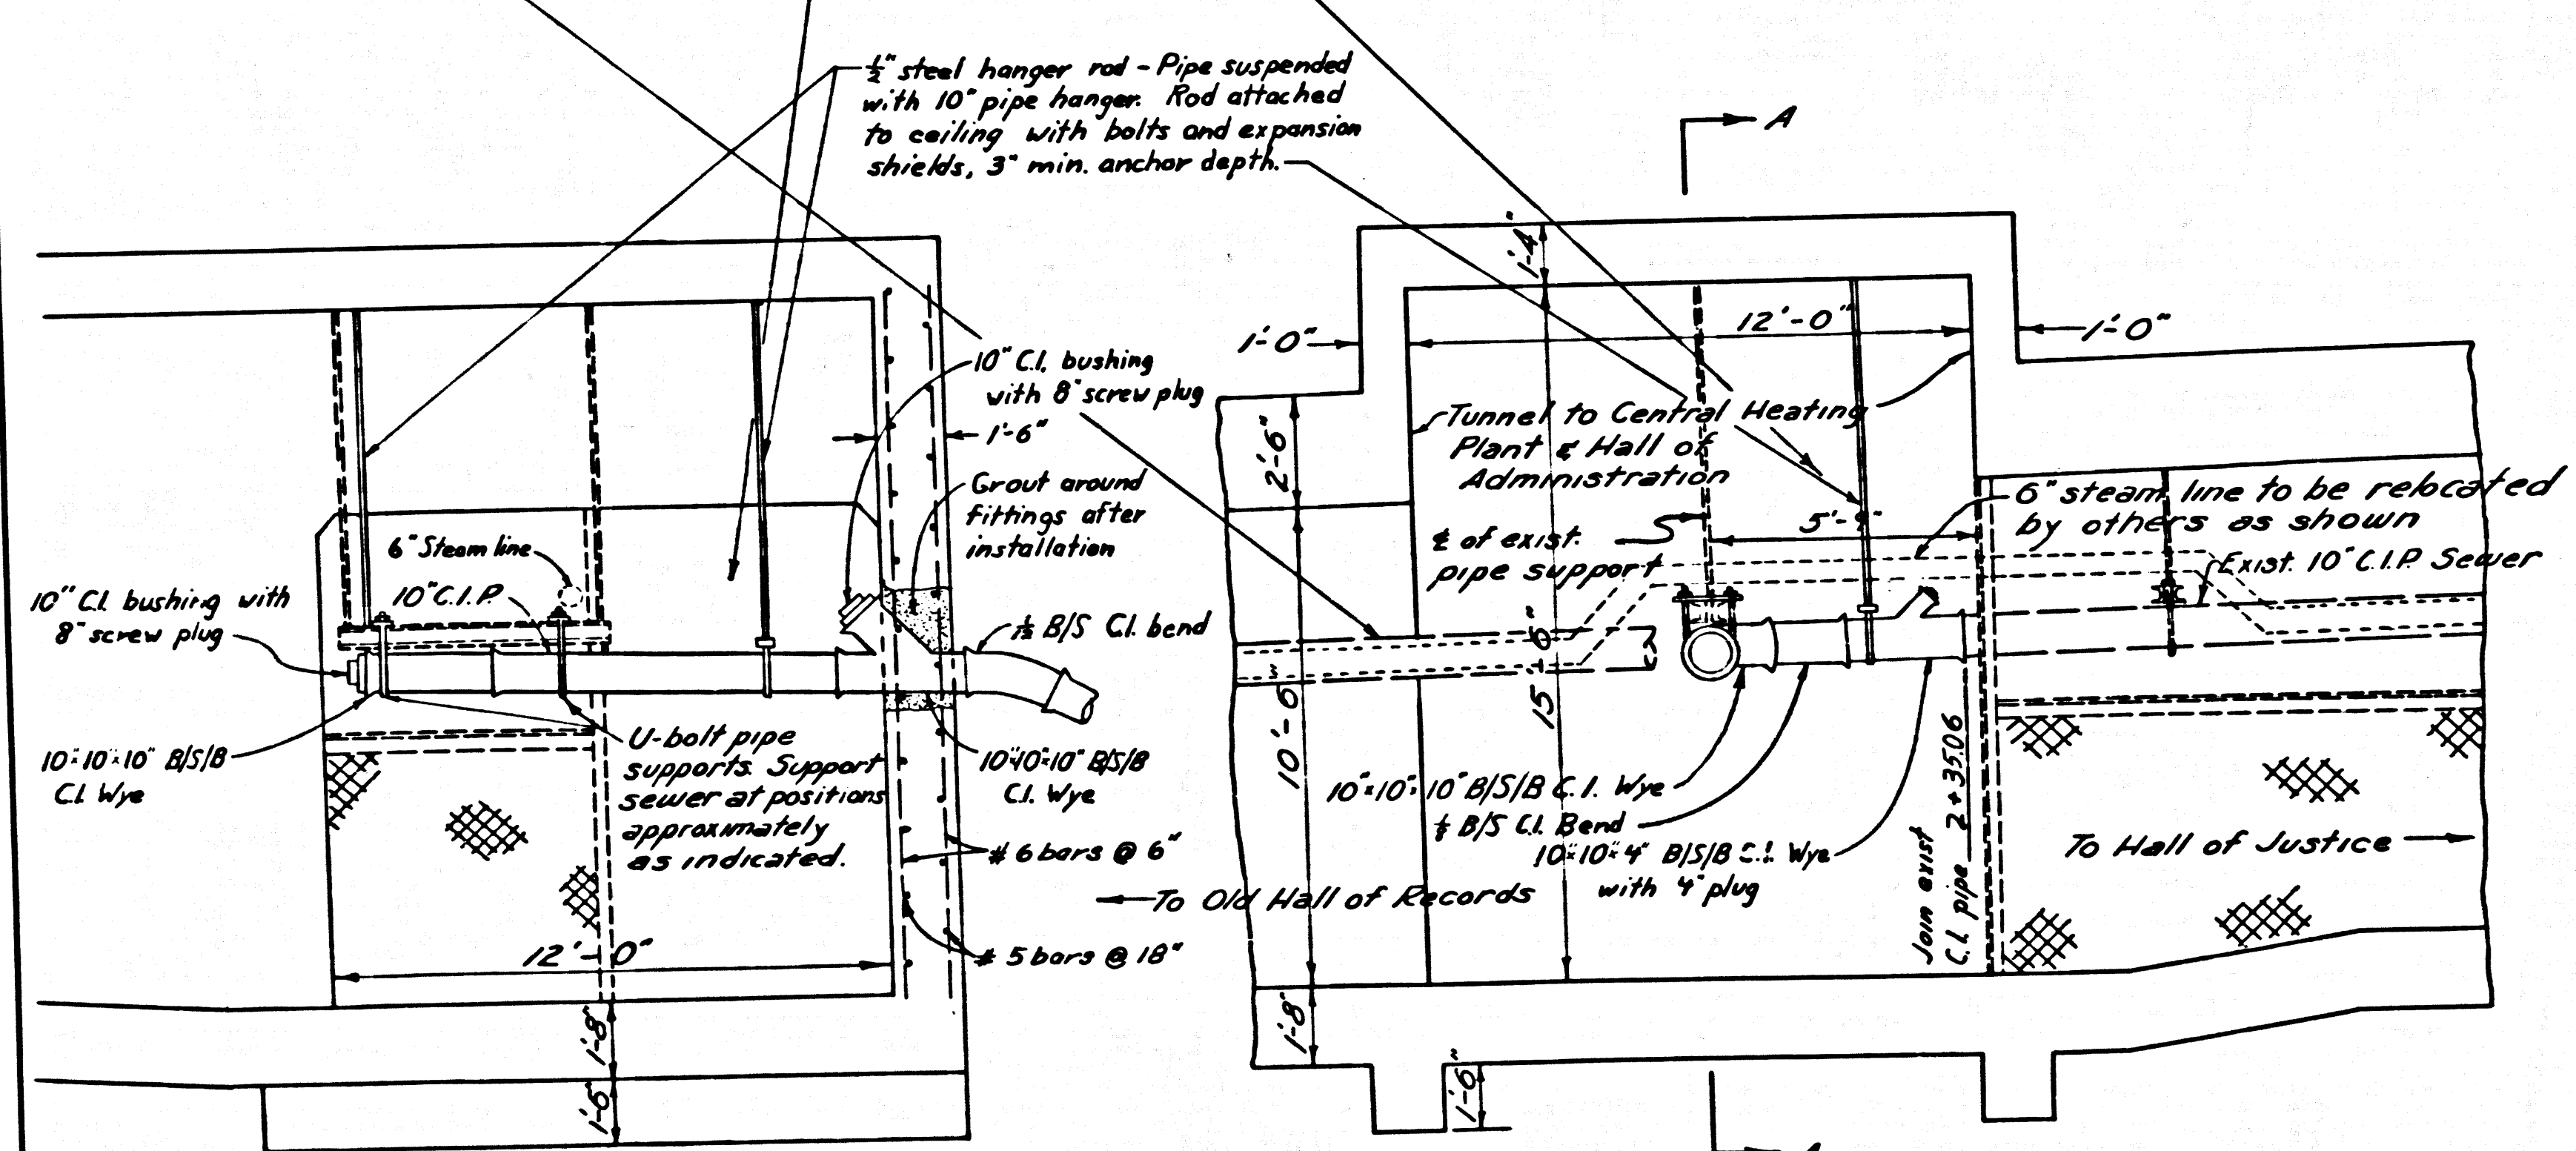 ½" steel hanger rod - Pipe suspended
with 10" pipe hanger. Rod attached
to ceiling with bolts and expansion
shields, 3" min. anchor depth.
A
1'-4"
1'-0"
12'-0"
1'-0"
10" C.I. bushing
with 8" screw plug
1'-6"
Grout around
fittings after
installation
6" Steam line
10" C.I.P.
10" C.I. bushing with
8" screw plug
B/S C.I. bend
10"x10"x10" B/S/B
C.I. Wye
U-bolt pipe
supports. Support
sewer at positions
approximately
as indicated.
10"x10"x10" B/S/B
C.I. Wye
# 6 bars @ 6"
# 5 bars @ 18"
12'-0"
1'-8"
1'-6"
2'-6"
Tunnel to Central Heating
Plant & Hall of
Administration
℄ of exist.
pipe support
5'-9"
6" steam line to be relocated
by others as shown
Exist. 10" C.I.P. Sewer
10'-6"
15'-6"
10"x10"x10" B/S/B C.I. Wye
⅛ B/S C.I. Bend
10"x10"x4" B/S/B C.I. Wye
with 4" plug
Join exist
C.I. pipe 2+35.06
To Hall of Justice
To Old Hall of Records
1'-8"
1'-6"